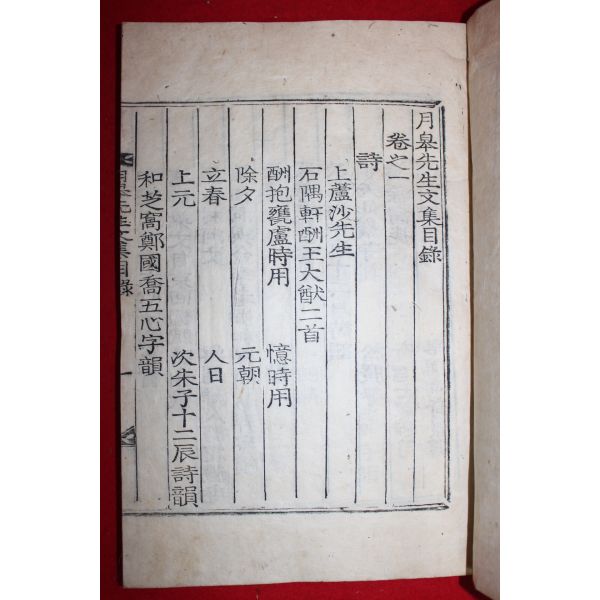 月皋先生文集目錄
卷之一
詩
上蘆沙先生
石隅軒酬王大猷二首
酬抱甕盧時用　憶時用
除夕　元朝
立春　人日
上元　次朱子十二辰詩韻
和芝窩鄭國喬五心字韻
月皋先生文集目錄　一